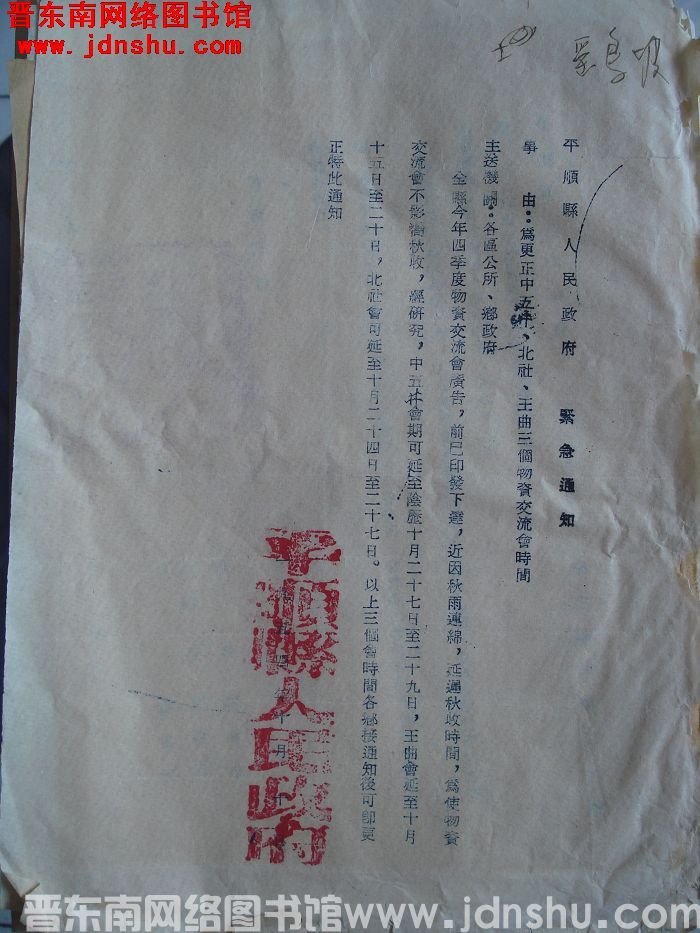 晋东南网络图书馆
www.jdnshu.com
平順縣人民政府 緊急通知
事 由：為更正中五井、北社、王曲三個物資交流會時間
主送機關：各區公所、鄉政府
全縣今年四季度物資交流會廣告，前已印發下達，近因秋雨連綿，延遲秋收時間，為使物資
交流會不影響秋收，經研究，中五井會期可延至陰曆十月二十七日至二十九日，王曲會延至十月
十五日至二十日，北社會可延至十月二十四日至二十七日。以上三個會時間各鄉接通知後可即更
正特此通知
平順縣人民政府
晋东南网络图书馆www.jdnshu.com